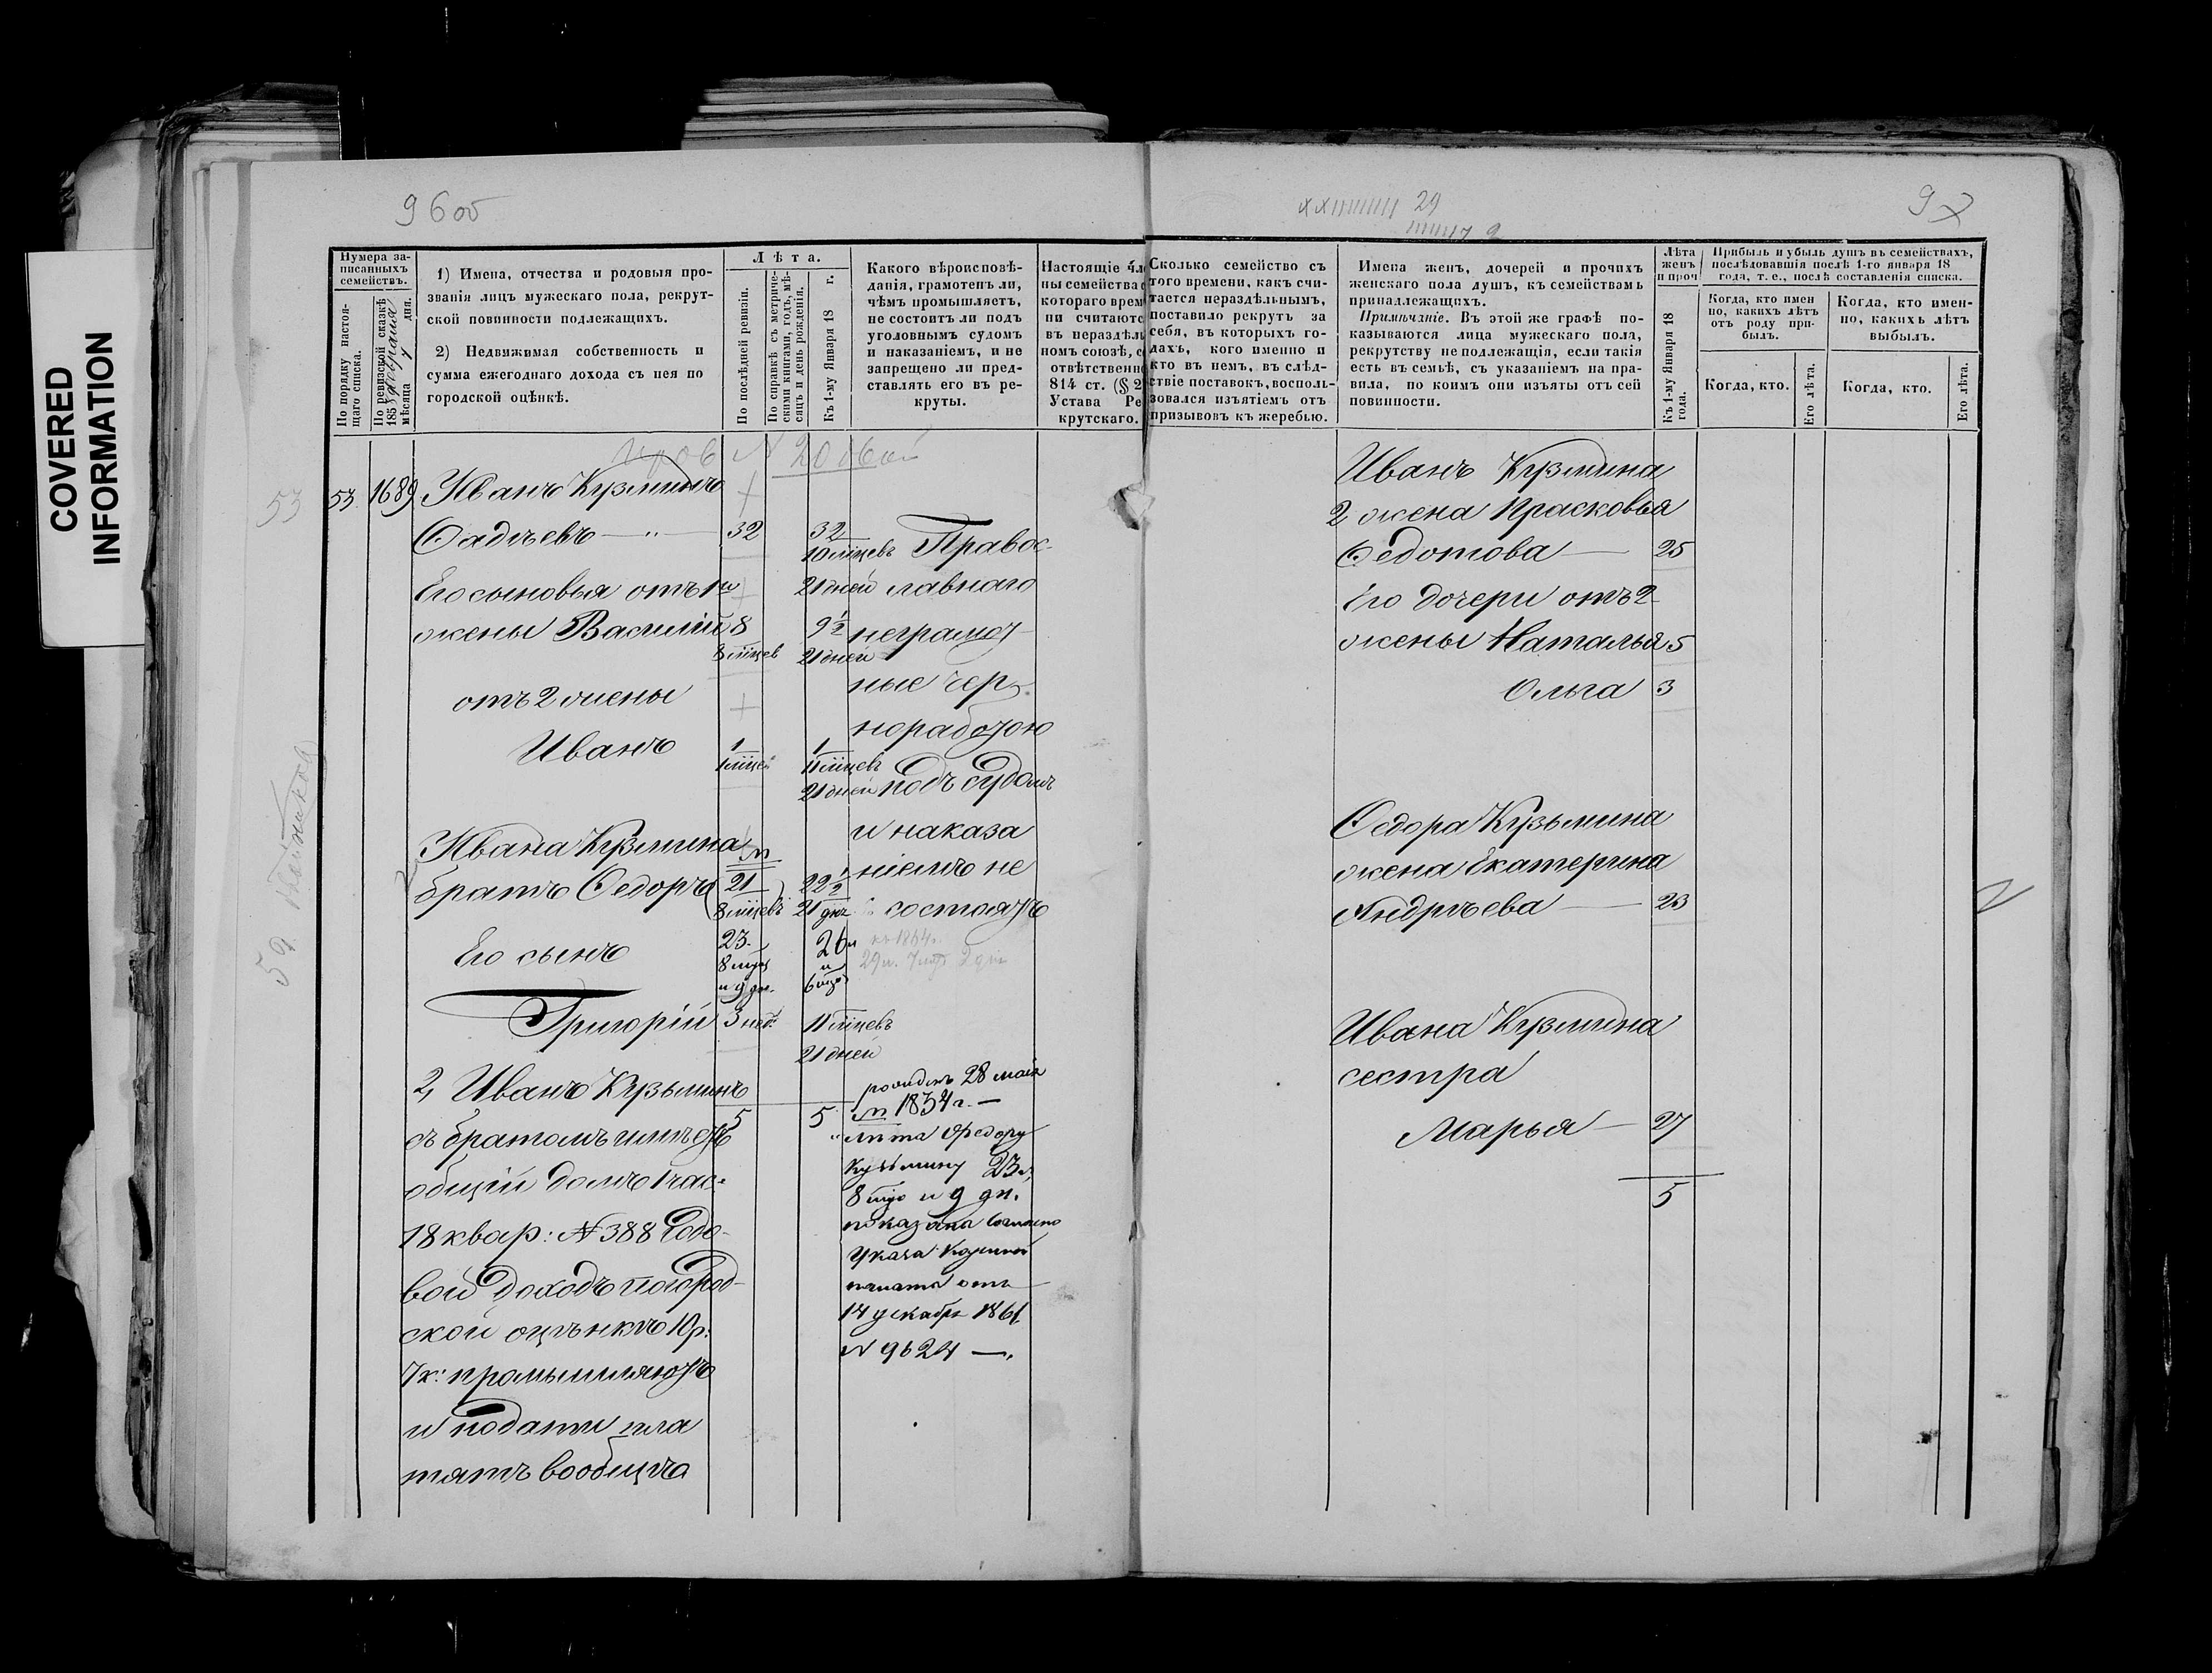 COVERED
INFORMATION
96об
29
9
97
Нумера за-
писанныхъ
семействъ.
По порядку настоя-
щаго списка.
По ревизской сказкѣ
185 8 февраля
мѣсяца 7 дня.
1) Имена, отчества и родовыя про-
званія лицъ мужескаго пола, рекрут-
ской повинности подлежащихъ.
2) Недвижимая собственность и
сумма ежегоднаго дохода съ нея по
городской оцѣнкѣ.
Лѣта.
По послѣдней ревизіи.
По справкѣ съ метриче-
скими книгами, годъ, мѣ-
сяцъ и день рожденія.
Къ 1-му Января 18 г.
Какого вѣроисповѣ-
данія, грамотенъ ли,
чѣмъ промышляетъ,
не состоитъ ли подъ
уголовнымъ судомъ
и наказаніемъ, и не
запрещено ли пред-
ставлять его въ ре-
круты.
Настоящіе чле
ны семейства с
котораго врем
ни считаютс
въ нераздѣль
номъ союзѣ, с
отвѣтственно
814 ст. (§ 2
Устава Ре
крутскаго.
Сколько семейство съ
того времени, какъ счи-
тается нераздѣльнымъ,
поставило рекрутъ за
себя, въ которыхъ го-
дахъ, кого именно и
кто въ немъ, въ слѣд-
ствіе поставокъ, восполь-
зовался изъятіемъ отъ
призывовъ къ жеребью.
Имена женъ, дочерей и прочихъ
женскаго пола душъ, къ семействамъ
принадлежащихъ.
Примѣчаніе. Въ этой же графѣ по-
казываются лица мужескаго пола,
рекрутству неподлежащія, если такія
есть въ семьѣ, съ указаніемъ на пра-
вила, по коимъ они изъяты отъ сей
повинности.
Лѣта
женъ
и проч.
Къ 1-му Января 18
года.
Прибыль и убыль душъ въ семействахъ,
послѣдовавшія послѣ 1-го января 18
года, т. е., послѣ составленія списка.
Когда, кто имен
но, какихъ лѣтъ
отъ роду при-
былъ.
Когда, кто имен-
но, какихъ лѣтъ
выбылъ.
Когда, кто.
Его лѣта.
Когда, кто.
Его лѣта.
53
53 1689 Иванъ Кузминъ
Фадѣевъ — " — 32 32
10 мцевъ
Его сыновья отъ 1й 21 дней
жены Василій 8 9 1/2
8 мцев 21 дней
отъ 2 жены
Иванъ 1 1
1 мцев 11 мцевъ
21 дней
Ивана Кузмина
братъ Федоръ 21 22 1/2
8 мцевъ 21 дн.
Его сынъ 23 26
8 мцъ и
и 9 дн. 6 мцъ
Григорій 3 нед. 11 мцевъ
21 дней
Православнаго
неграмот-
ные чер-
ноработою
подъ судомъ
и наказа
ніемъ не
состоятъ
къ 1864 г.
29 л. 7 мцъ 9 дн
2, Иванъ Кузьминъ
съ братомъ имѣетъ 5 5
общій домъ 1 час.
18 квар: № 388 Годо-
вой доходъ по город-
ской оцѣнкѣ 10 р.
7 к: промышляютъ
и подати пла
тятъ вообще
рожденъ 28 мая
1834 г. —
лѣта Федору
Кузьмину 23 л,
8 мцъ и 9 дн.
показана согласно
Указа Казенной
палаты отъ
14 декабря 1861.
№ 9624 —.
Иванъ Кузмина
2 жена Прасковья
Федотова — 25
Его дочери отъ 2
жены Наталья 5
Ольга 3
Федора Кузьмина
жена Екатерина
Андрѣева — 23
Ивана Кузмина
сестра
Марья — 27
5